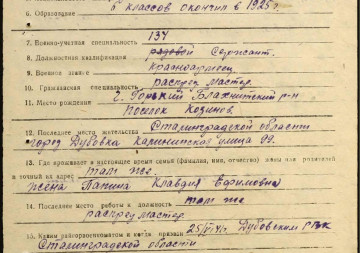 6. Образование 6 классов окончил в 1925 г.
7. Военно-учетная специальность 134
8. Должностная квалификация рядовой Сержант.
9. Военное звание Красноармеец
10. Гражданская специальность раскрой мастер.
11. Место рождения г. Горький р-н
поселок Козинов.
12. Последнее место жительства Сталинградской области
город Дубовка Калининская улица 99.
13. Где проживает в настоящее время семья (фамилия, имя, отчество) жены или родителей
и точный их адрес там же.
жена Папина Клавдия Ефимовна
14. Последнее место работы и должность там же
раскрой мастер.
15. Каким райгорвоенкоматом и когда призван Дубовским РВК
Сталинградской области